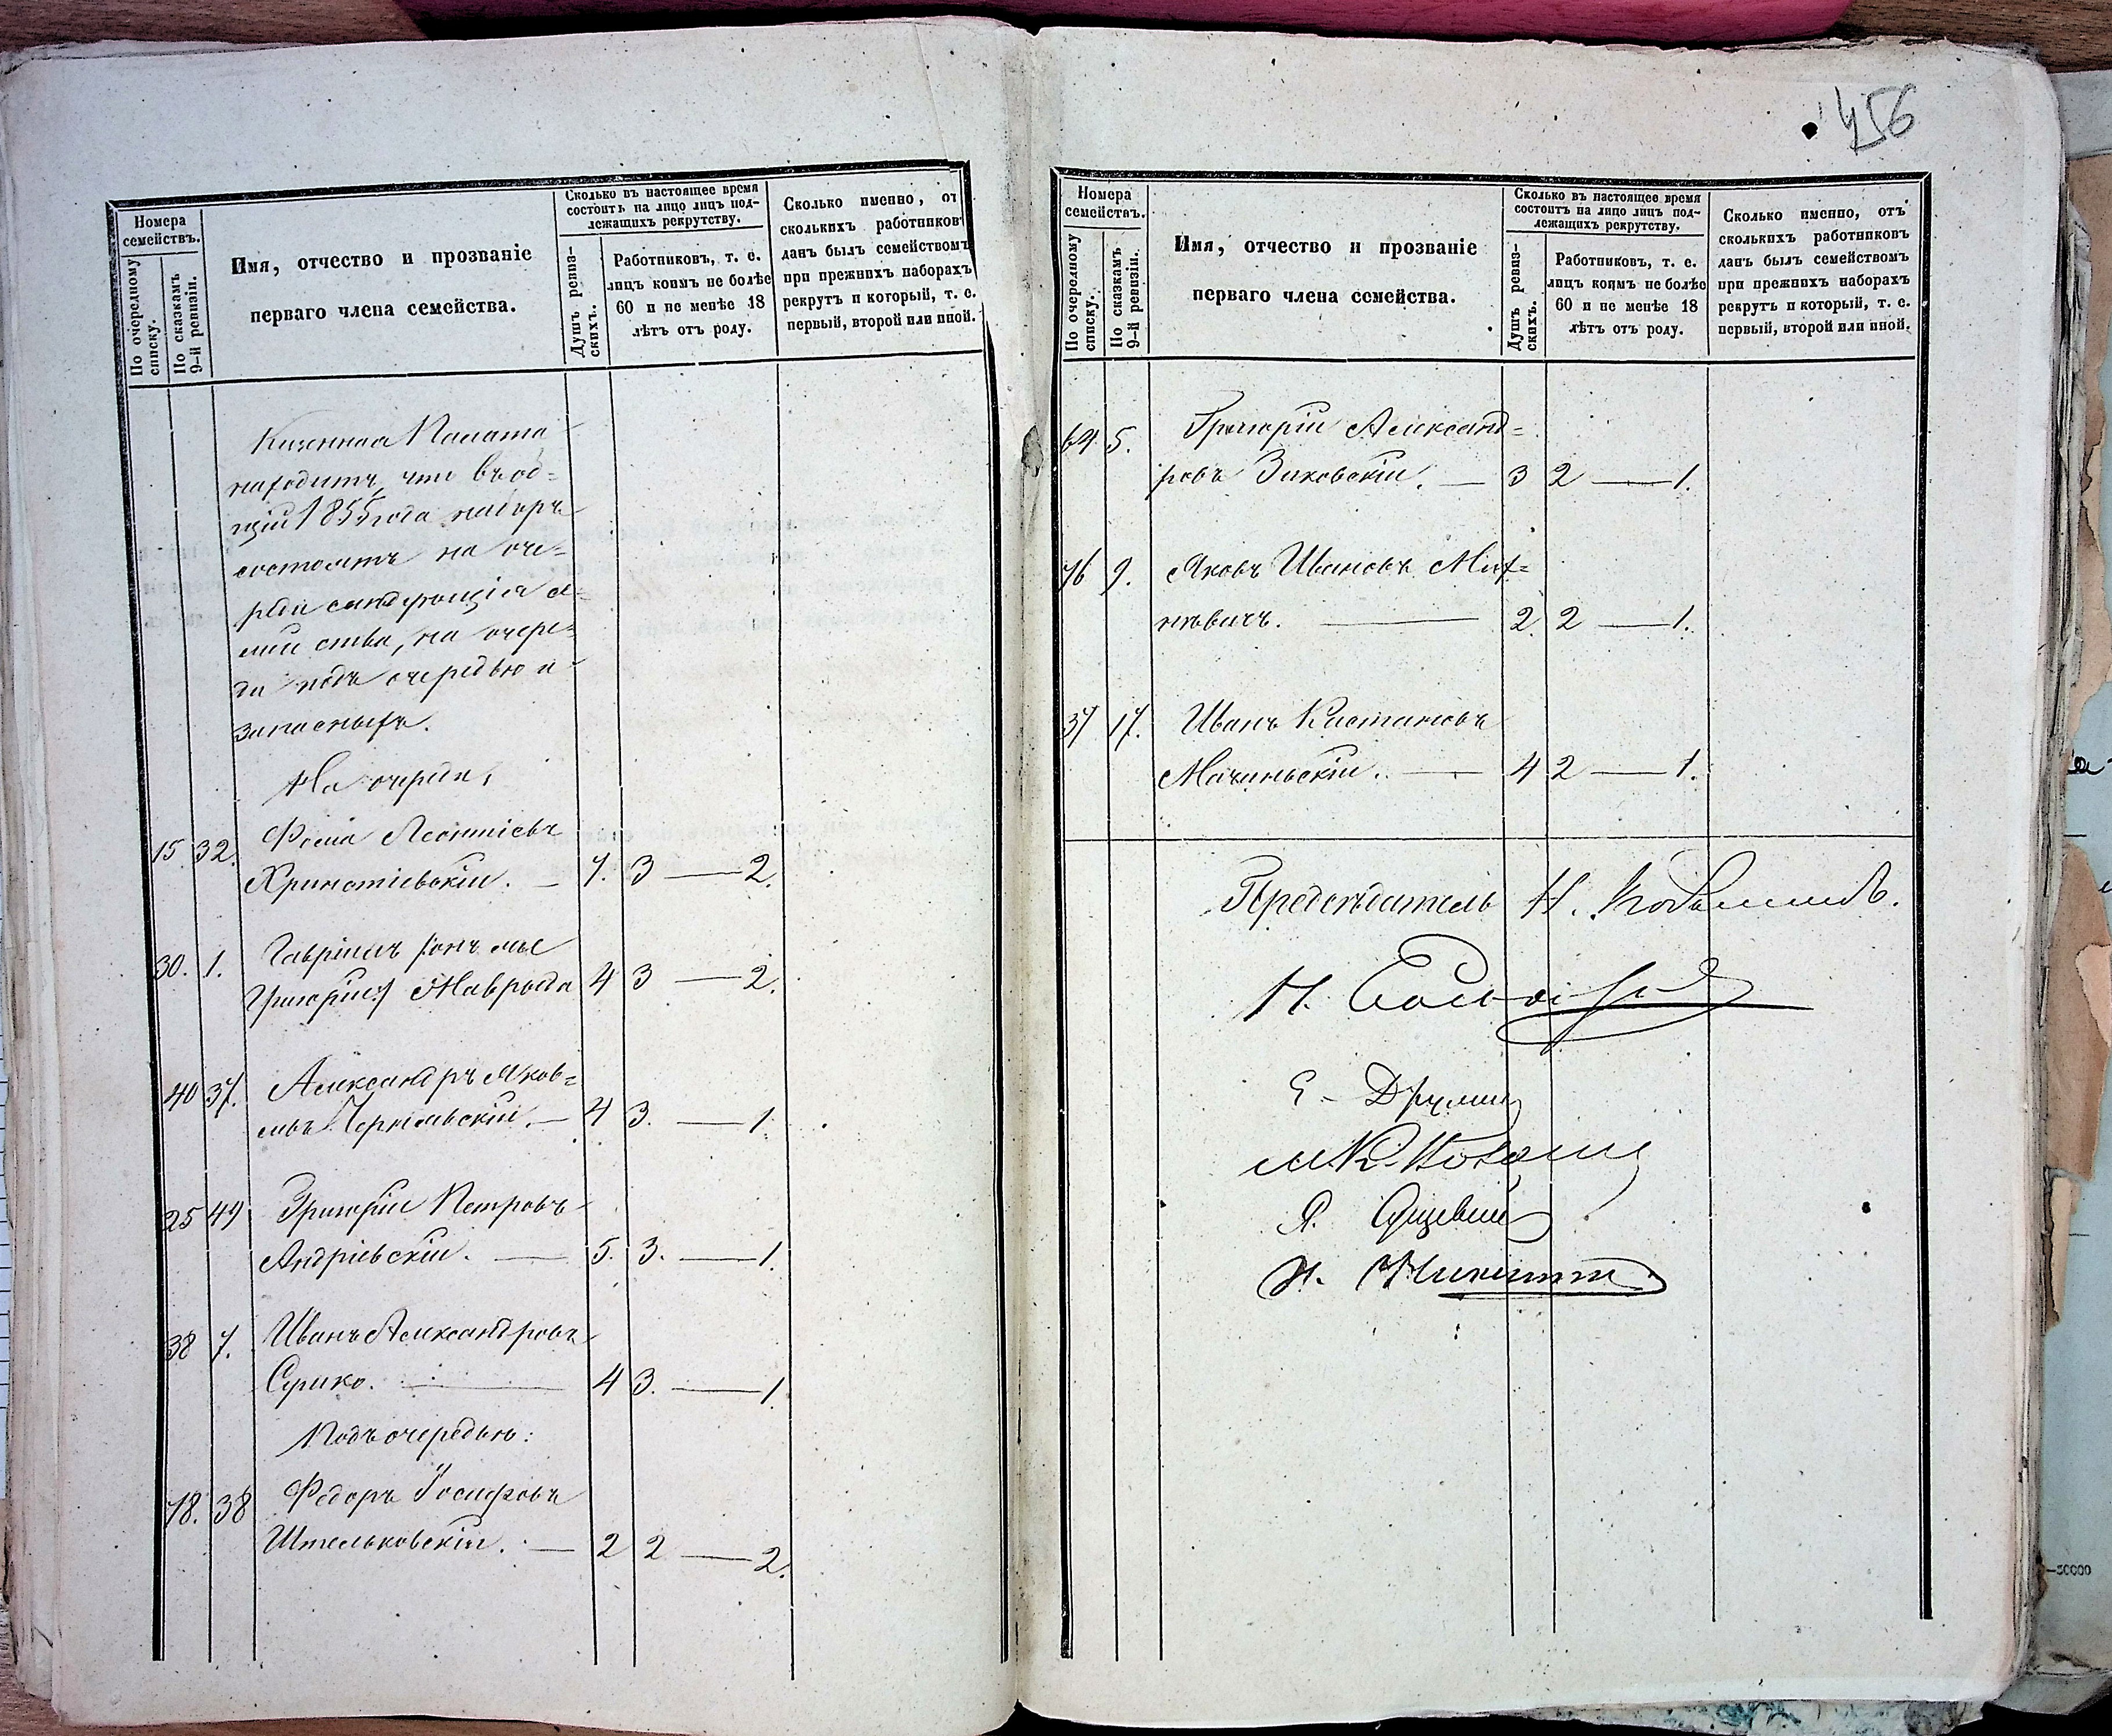 456
Номера
семействъ.
По очередному
списку.
По сказкамъ
9-й ревизіи.
Имя, отчество и прозваніе
перваго члена семейства.
Сколько въ настоящее время
состоитъ на лицо лицъ под-
лежащихъ рекрутству.
Душъ ревиз-
скихъ.
Работниковъ, т. е.
лицъ коимъ не болѣе
60 и не менѣе 18
лѣтъ отъ роду.
Сколько именно, от
сколькихъ работников
данъ былъ семействомъ
при прежнихъ наборахъ
рекрутъ и который, т. е.
первый, второй или иной.
Казенная Палата
находитъ, что въ об=
щій 1855 года наборъ
состоятъ на оче=
реди слѣдующія се=
мейства, на очере=
ди подъ очередью и
запасныхъ.
На очереди,
15 32. Фома Леонтіевъ
Хринотіевскій. — 7. 3 — 2.
30. 1. Гавріилъ
Григорій Мавроди 4 3 — 2.
40 37. Александръ Яков=
левъ — 4 3. — 1.
25 49 Григорій Петровъ
Андріевскій. — 5. 3. — 1.
38 7. Иванъ Александровъ
Сушко. — 4 3. — 1.
Подъ очередью:
78. 38 Федоръ Іосифовъ
Штельковскій. — 2 2 — 2.
Номера
семействъ.
По очередному
списку.
По сказкамъ
9-й ревизіи.
Имя, отчество и прозваніе
перваго члена семейства.
Сколько въ настоящее время
состоитъ на лицо лицъ под-
лежащихъ рекрутству.
Душъ ревиз-
скихъ.
Работниковъ, т. е.
лицъ коимъ не болѣе
60 и не менѣе 18
лѣтъ отъ роду.
Сколько именно, отъ
сколькихъ работниковъ
данъ былъ семействомъ
при прежнихъ наборахъ
рекрутъ и который, т. е.
первый, второй или иной.
64 5. Григорій Александ=
ровъ Заковскій. — 3 2 — 1.
76 9. Яковъ Ивановъ Мих=
невичъ. — 2. 2 — 1.
37 17. Иванъ
Мачинскій. — 4 2 — 1.
Предсѣдатель Н.
Н.
Е.
Я.
Н. Никитин
—50000